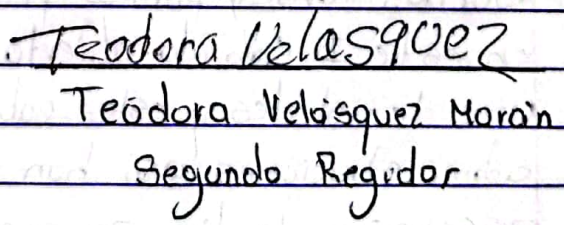 Teodora Velasquez
Teodora Velásquez Marán
Segundo Regidor.